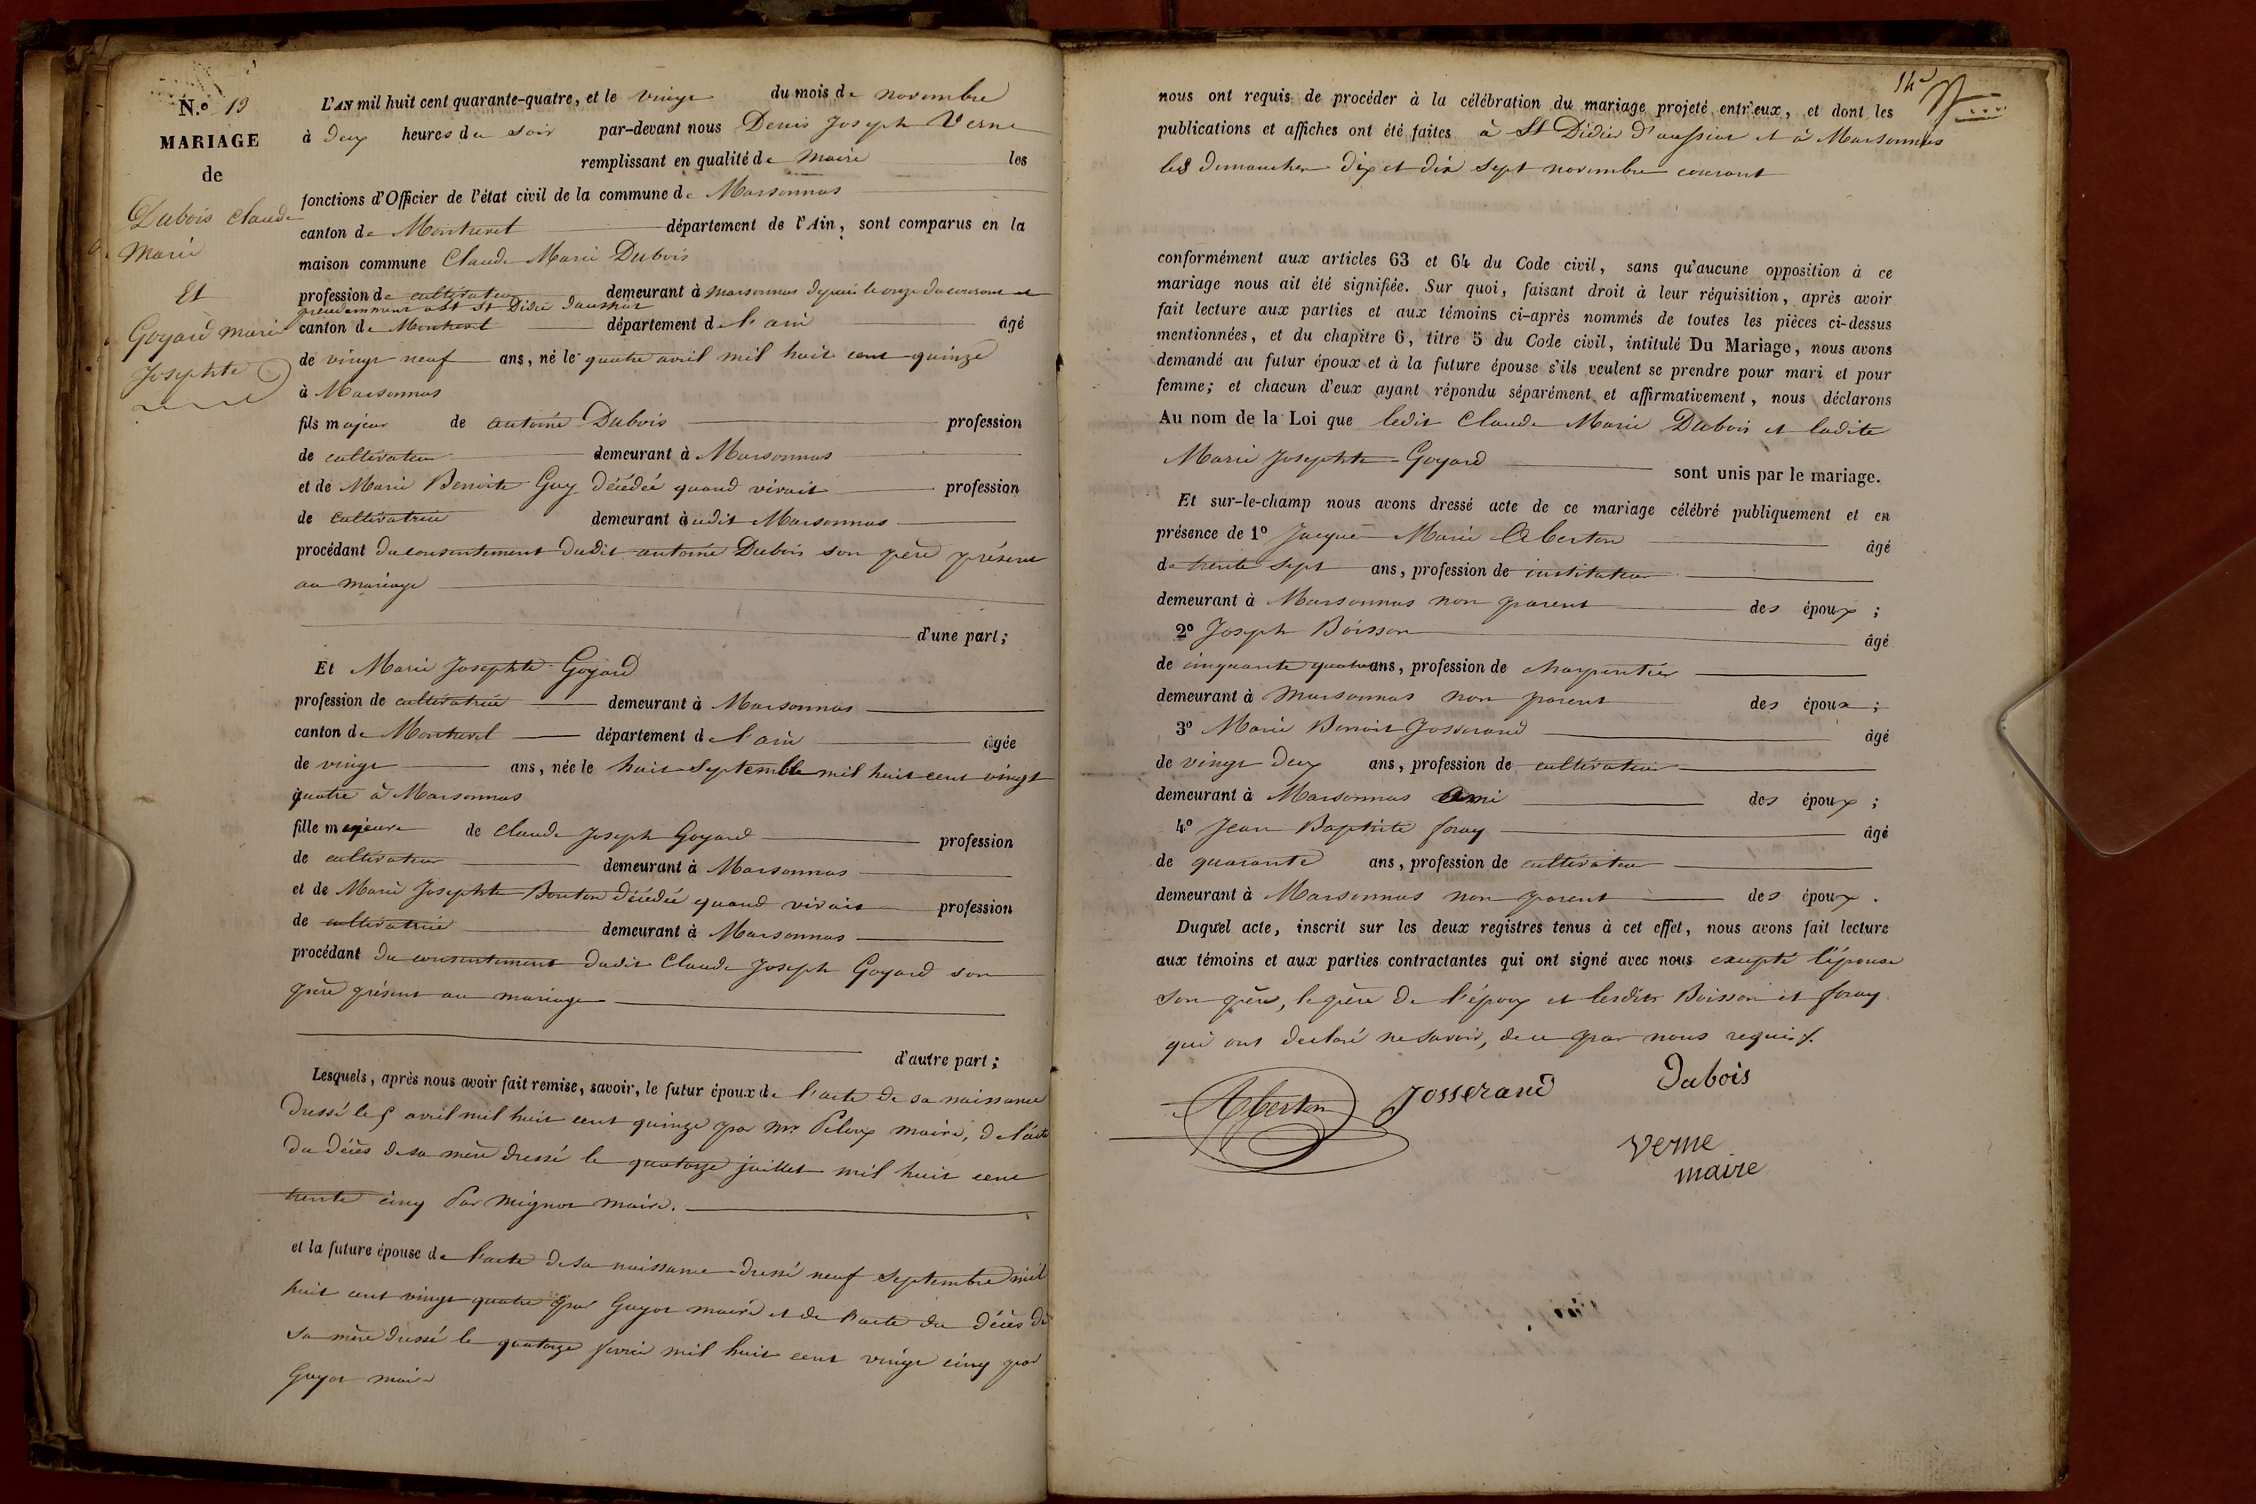 N.º 19
MARIAGE
de
Dubois Claude
Marie
Et
Goyard Marie
Josephte
L'AN mil huit cent quarante-quatre, et le vingt du mois de novembre
à deux heures du soir par-devant nous Denis Joseph Verne
remplissant en qualité de maire les
fonctions d'Officier de l'état civil de la commune de Marsonnas
canton de Montrevel département de l'Ain, sont comparus en la
maison commune Claude Marie Dubois
profession de cultivateur demeurant à Marsonnas depuis le onze du courant et
précédemment à St Didier d'aussiat
canton de Montrevel département de l'ain âgé
de vingt neuf ans, né le quatre avril mil huit cent quinze
à Marsonnas
fils majeur de antoine Dubois profession
de cultivateur demeurant à Marsonnas
et de Marie Benoite Guy décédée quand vivait profession
de cultivatrice demeurant àudit Marsonnas
procédant du consentement dudit antoine Dubois son père présent
au mariage
d'une part;
Et Marie Josephte Goyard
profession de cultivatrice demeurant à Marsonnas
canton de Montrevel département de l'ain âgée
de vingt ans, née le huit Septembre mil huit cent vingt
quatre à Marsonnas
fille majeure de Claude Joseph Goyard profession
de cultivateur demeurant à Marsonnas
et de Marie Josephte Bouton décédée quand vivait profession
de cultivatrice demeurant à Marsonnas
procédant du consentement dudit Claude Joseph Goyard son
père présent au mariage
d'autre part;
Lesquels, après nous avoir fait remise, savoir, le futur époux de l'acte de sa naissance
dressé le 5 avril mil huit cent quinze par Mr Peloux maire, de l'acte
du décès de sa mère dressé le quatorze juillet mil huit cent
trente cinq Par Mignot maire.
et la future épouse de l'acte de sa naissance dressé neuf septembre mil
huit cent vingt quatre par Guyot maire et de l'acte du décès de
sa mère dressé le quatorze fevrier mil huit cent vingt cinq par
Guyot maire
14e
nous ont requis de procéder à la célébration du mariage projeté entr'eux, et dont les
publications et affiches ont été faites à St Didier d'aussiat et à Marsonnas
les dimanches dix et dix sept novembre courant
conformément aux articles 63 et 64 du Code civil, sans qu'aucune opposition à ce
mariage nous ait été signifiée. Sur quoi, faisant droit à leur réquisition, après avoir
fait lecture aux parties et aux témoins ci-après nommés de toutes les pièces ci-dessus
mentionnées, et du chapitre 6, titre 5 du Code civil, intitulé Du Mariage, nous avons
demandé au futur époux et à la future épouse s'ils veulent se prendre pour mari et pour
femme; et chacun d'eux ayant répondu séparément et affirmativement, nous déclarons
Au nom de la Loi que ledit Claude Marie Dubois et ladite
Marie Josephte Goyard sont unis par le mariage.
Et sur-le-champ nous avons dressé acte de ce mariage célébré publiquement et en
présence de 1º Jacque Marie Cberton âgé
de trente sept ans, profession de instituteur
demeurant à Marsonnas non parent des époux;
2º Joseph Boisson âgé
de cinquante quatre ans, profession de charpentier
demeurant à Marsonnas non parent des époux;
3º Marie Benoit Josserand âgé
de vingt deux ans, profession de cultivateur
demeurant à Marsonnas ami des époux;
4º Jean Baptiste foray âgé
de quarante ans, profession de cultivateur
demeurant à Marsonnas non parent des époux.
Duquel acte, inscrit sur les deux registres tenus à cet effet, nous avons fait lecture
aux témoins et aux parties contractantes qui ont signé avec nous excepté l'épouse
son père, le père de l'époux et lesdits Boisson et foray
qui ont declaré ne savoir, de ce par nous requis.
Josserand Dubois
Verne
maire